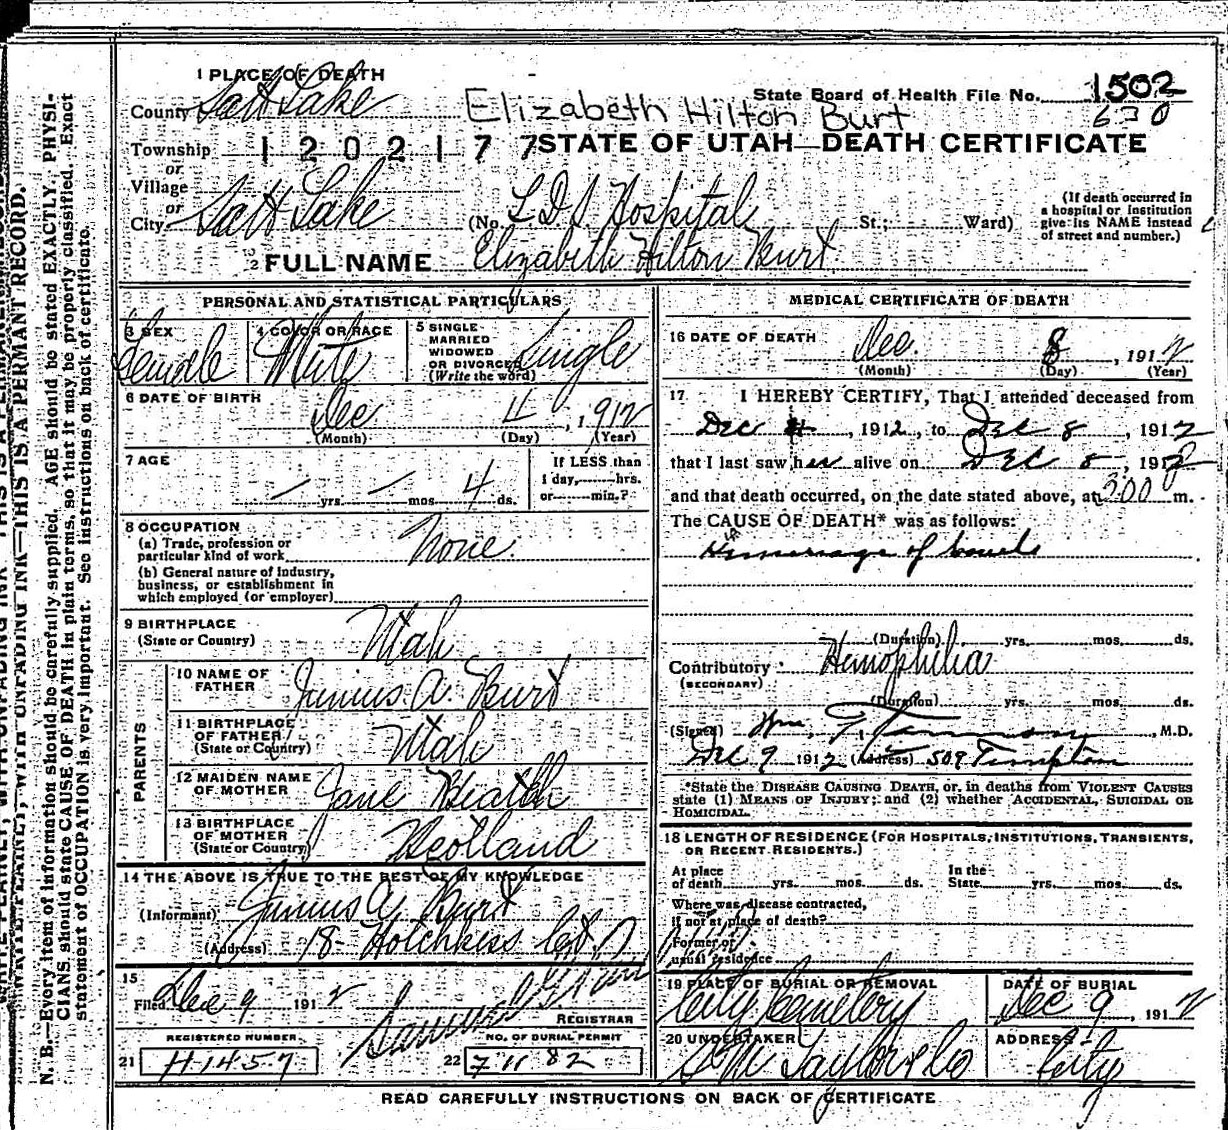 1 PLACE OF DEATH
County Salt Lake
Elizabeth Hilton Burt
State Board of Health File No. 1502
630
Township 1202177
STATE OF UTAH—DEATH CERTIFICATE
or
Village
or
City Salt Lake
(No. LDS Hospital St.; Ward)
(If death occurred in a hospital or institution give its NAME instead of street and number.)
2 FULL NAME Elizabeth Hilton Burt
PERSONAL AND STATISTICAL PARTICULARS
3 SEX Female
4 COLOR OR RACE White
5 SINGLE MARRIED WIDOWED OR DIVORCED (Write the word) Single
6 DATE OF BIRTH Dec 4, 1912
(Month) (Day) (Year)
7 AGE — yrs. — mos. 4 ds.
If LESS than 1 day, hrs. or min.?
8 OCCUPATION
(a) Trade, profession or particular kind of work None.
(b) General nature of industry, business, or establishment in which employed (or employer)
9 BIRTHPLACE
(State or Country) Utah
PARENTS
10 NAME OF FATHER Junius A. Burt
11 BIRTHPLACE OF FATHER (State or Country) Utah
12 MAIDEN NAME OF MOTHER Jane Heath
13 BIRTHPLACE OF MOTHER (State or Country) Scotland
14 THE ABOVE IS TRUE TO THE BEST OF MY KNOWLEDGE
(Informant) Junius A Burt
(Address) 18 Hotchkiss Ct.
15
Filed Dec 9 1912
REGISTRAR
REGISTERED NUMBER
21 H1457
NO. OF BURIAL PERMIT
22 71182
MEDICAL CERTIFICATE OF DEATH
16 DATE OF DEATH Dec. 8, 1912
(Month) (Day) (Year)
17 I HEREBY CERTIFY, That I attended deceased from
Dec 4, 1912, to Dec 8, 1912
that I last saw her alive on Dec 8, 1912
and that death occurred, on the date stated above, at 300 m.
The CAUSE OF DEATH* was as follows:
Hemorrage of bowels
(Duration) yrs. mos. ds.
Contributory Hemophilia
(SECONDARY)
(Duration) yrs. mos. ds.
(Signed) Wm. F., M.D.
Dec 9 1912 (Address) 509 Templeton
*State the DISEASE CAUSING DEATH, or, in deaths from VIOLENT CAUSES state (1) MEANS OF INJURY; and (2) whether ACCIDENTAL, SUICIDAL OR HOMICIDAL.
18 LENGTH OF RESIDENCE (FOR HOSPITALS, INSTITUTIONS, TRANSIENTS, OR RECENT RESIDENTS.)
At place of death yrs. mos. ds. In the State yrs. mos. ds.
Where was disease contracted, if not at place of death?
Former or usual residence
19 PLACE OF BURIAL OR REMOVAL City Cemetery
DATE OF BURIAL Dec 9, 1912
20 UNDERTAKER S M Taylor & Co
ADDRESS City
READ CAREFULLY INSTRUCTIONS ON BACK OF CERTIFICATE
WRITE PLAINLY, WITH UNFADING INK—THIS IS A PERMANT RECORD.
N. B.—Every item of information should be carefully supplied. AGE should be stated EXACTLY. PHYSI-
CIANS should state CAUSE OF DEATH in plain terms, so that it may be properly classified. Exact
statement of OCCUPATION is very important. See instructions on back of certificate.